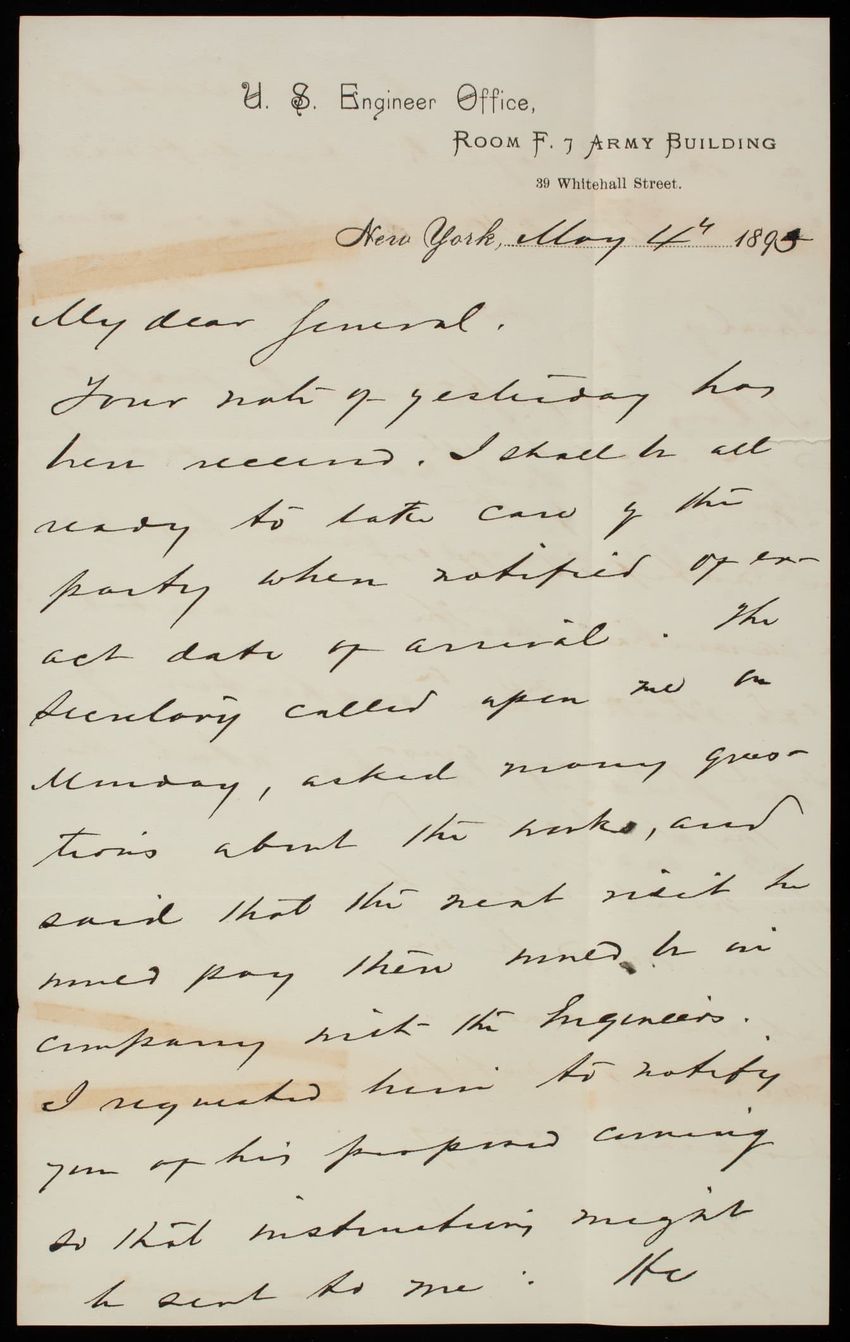 U. S. Engineer Office,
ROOM F. 7 ARMY BUILDING
39 Whitehall Street.
New York, May 4th 1893
My dear General.
Your note of yesterday has
been received. I shall be all
ready to take care of the
party when notified of ex-
act date of arrival. The
Secretary called upon me on
Monday, asked many ques-
tions about the works, and
said that the next visit he
would pay them would be in
company with the Engineers.
I requested him to notify
you of his proposed coming
so that instructions might
be sent to me. He